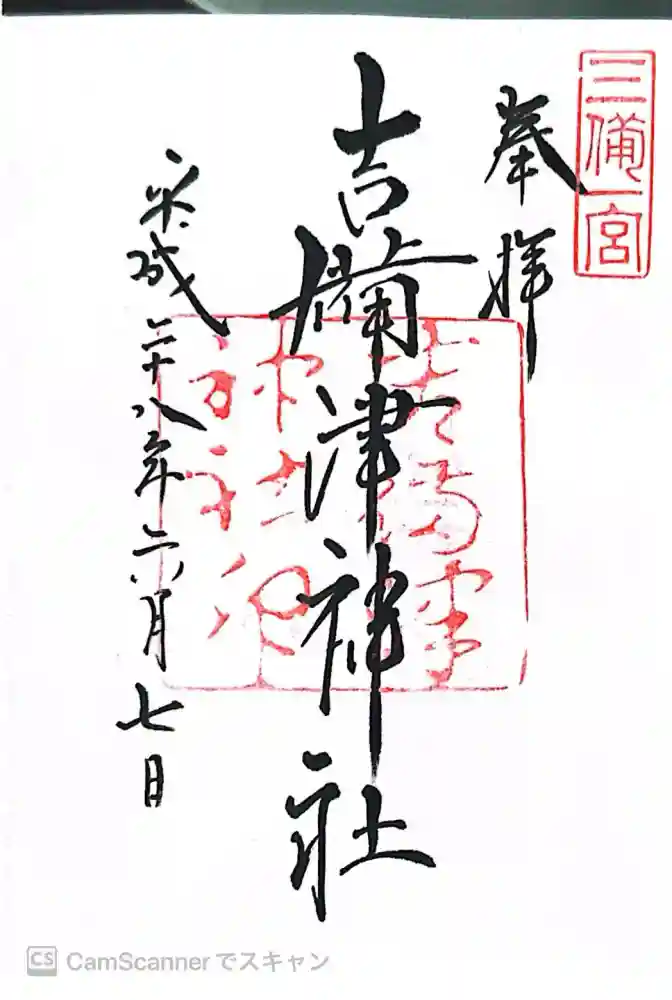 三備一宮
奉拝
吉備津神社
平成二十八年六月七日
CS CamScannerでスキャン